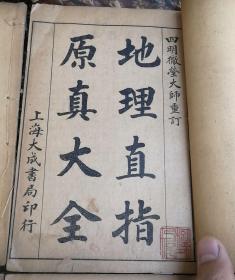 四明徹瑩大師重訂
地理直指
原真大全
上海大成書局印行